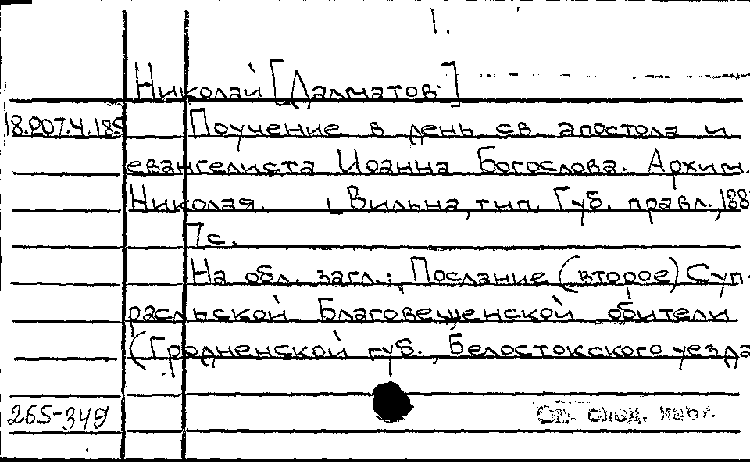 1.
Николай [Далматов]
18.207.4.185
Поучение в день св. апостола и
евангелиста Иоанна Богослова. Архим.
Николая. Вильна, тип. Губ. правл., 188
7с.
На обл. загл.: Послание (второе) Суп-
расльской Благовещенской обители
(Гродненской губ., Белостокского уезда
265-349